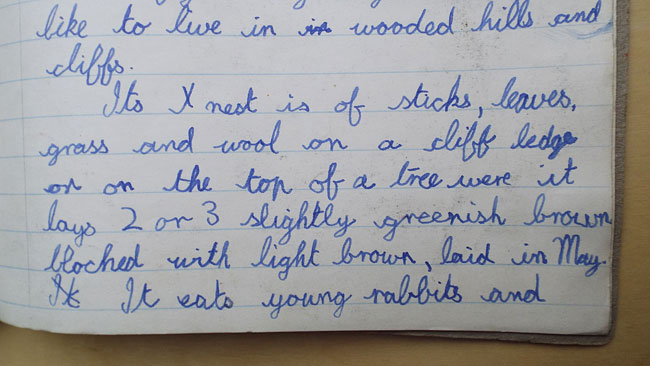 like to live in in wooded hills and
cliffs.
Its X nest is of sticks, leaves,
grass and wool on a cliff ledge
or on the top of a tree were it
lays 2 or 3 slightly greenish brown
bloched with light brown, laid in May.
It It eats young rabbits and